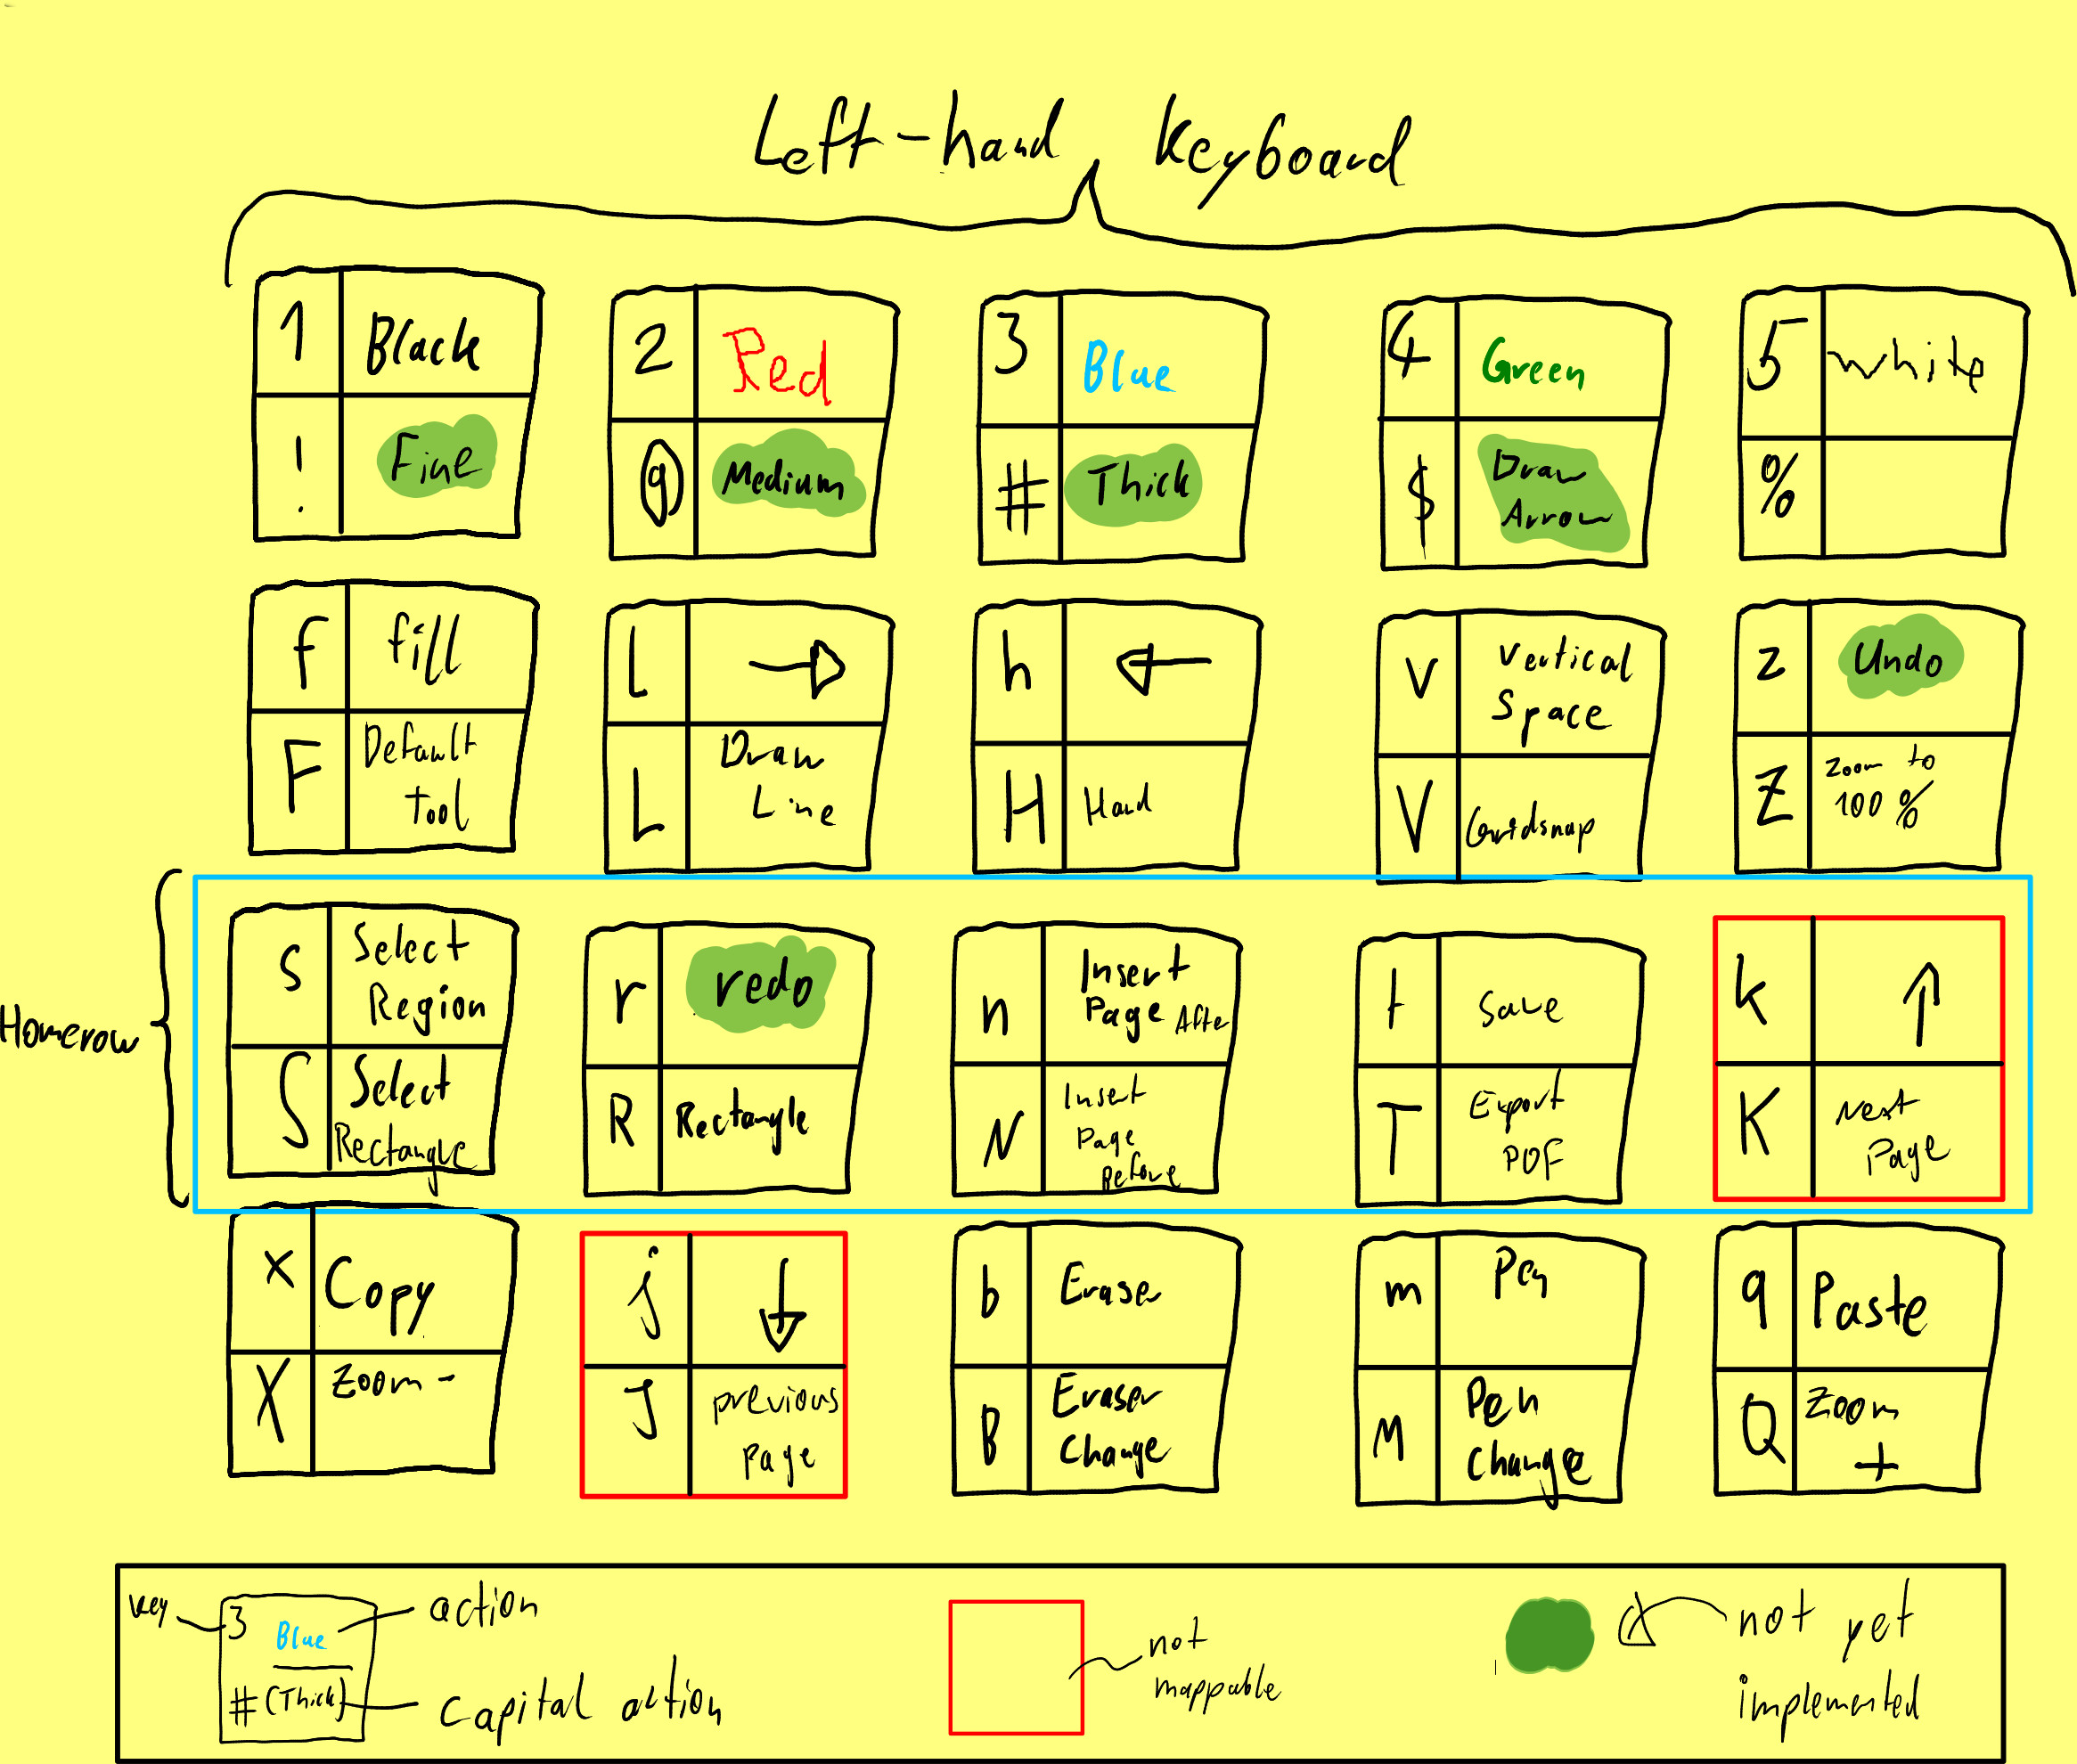 Left-hand Keyboard
1 Black
! Fine
2 Red
@ Medium
3 Blue
# Thick
4 Green
$ Draw
Arrow
5 white
%
f fill
F Default
tool
l →
L Draw
Line
h ←
H Hand
v Vertical
Space
V Gridsnap
z Undo
Z Zoom to
100 %
Homerow
s Select
Region
S Select
Rectangle
r redo
R Rectangle
n Insert
Page After
N Insert
Page
Before
t Save
T Export
PDF
k ↑
K Next
Page
x Copy
X Zoom -
j ↓
J previous
page
b Erase
B Eraser
Change
m Pen
M Pen
Change
q Paste
Q Zoom
+
key 3 Blue action
# (Thick) capital action
not
mappable
not yet
implemented